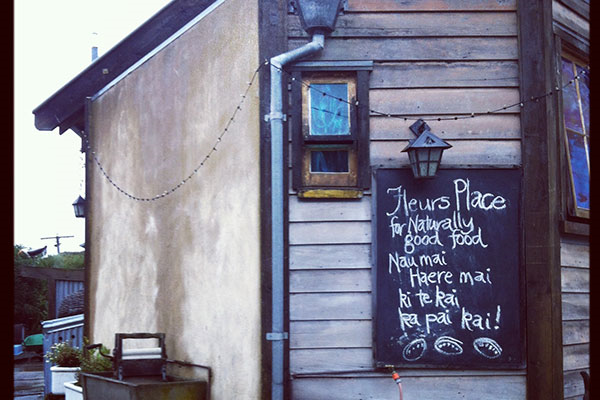 Fleurs Place
for Naturally
good food
Nau mai
Haere mai
ki te kai
ka pai kai!